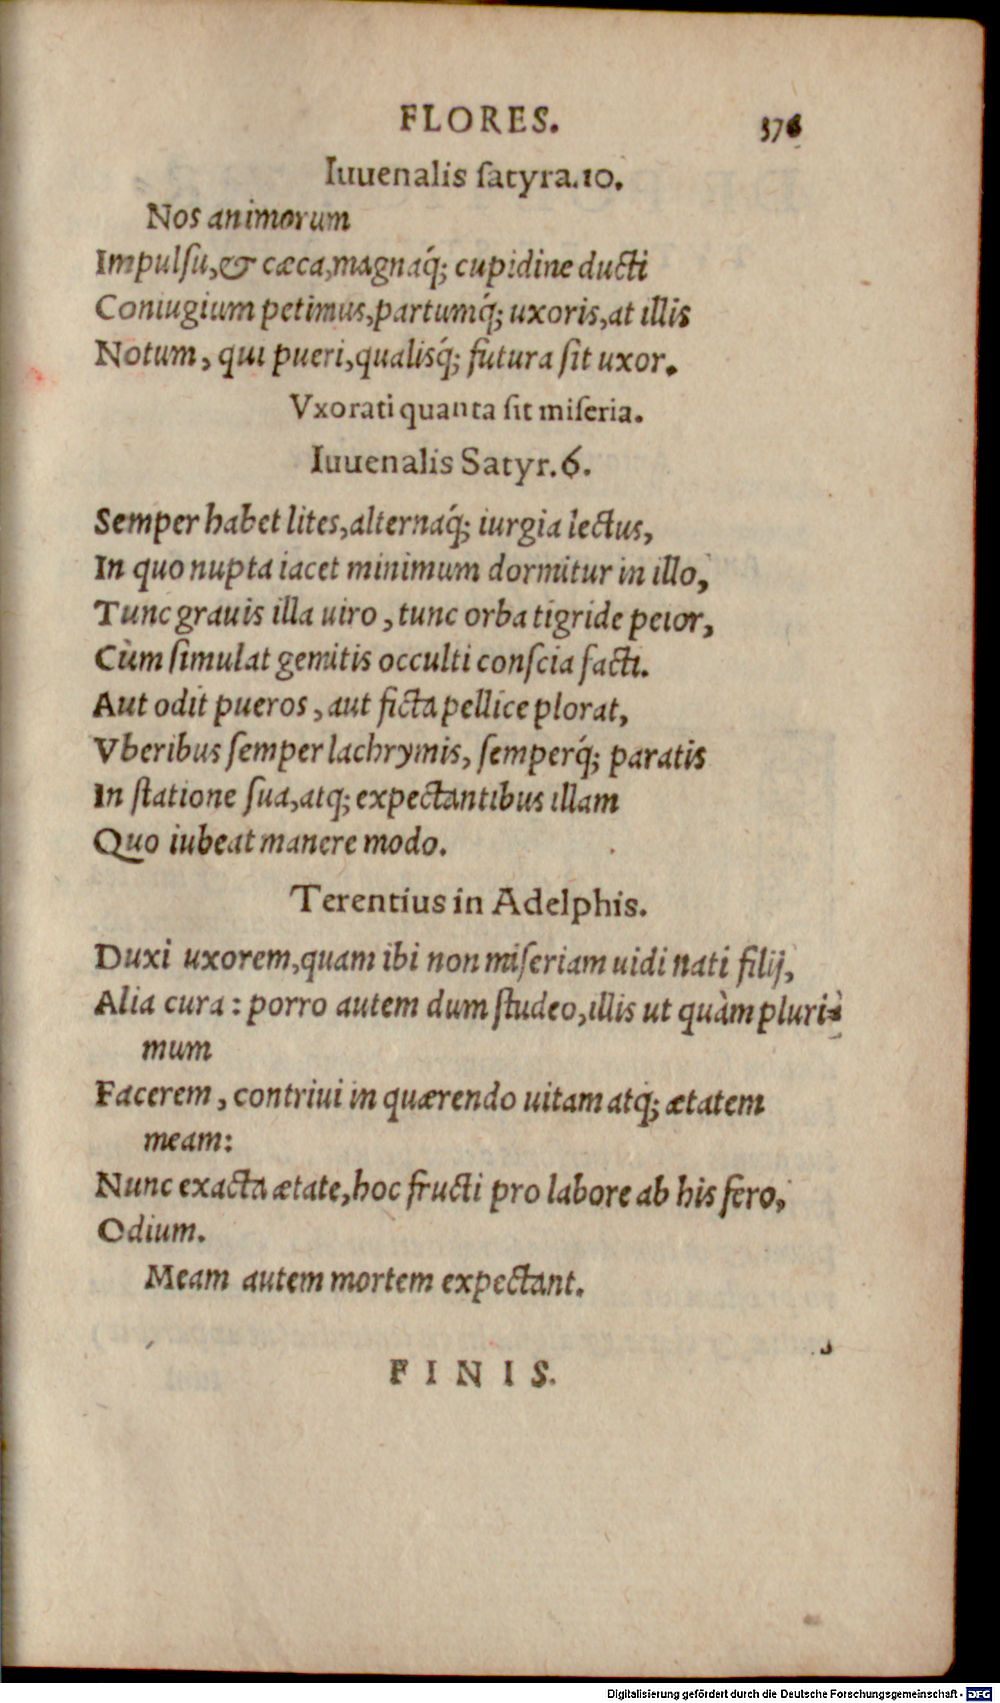 FLORES. 376
Iuuenalis ſatyra.10.
Nos animorum
Impulſu,& cæca,magnaq́; cupidine ducti
Coniugium petimus,partumq́; uxoris,at illis
Notum, qui pueri,qualisq́; futura ſit uxor.
Vxorati quanta ſit miſeria.
Iuuenalis Satyr.6.
Semper habet lites,alternaq́; iurgia lectus,
In quo nupta iacet minimum dormitur in illo,
Tunc grauis illa uiro, tunc orba tigride peior,
Cùm ſimulat gemitis occulti conſcia facti.
Aut odit pueros, aut ficta pellice plorat,
Vberibus ſemper lachrymis, ſemperq́; paratis
In ſtatione ſua,atq; expectantibus illam
Quo iubeat manere modo.
Terentius in Adelphis.
Duxi uxorem,quam ibi non miſeriam uidi nati filij,
Alia cura: porro autem dum ſtudeo,illis ut quàm pluri-
mum
Facerem, contriui in quærendo uitam atq; ætatem
meam:
Nunc exacta ætate,hoc fructi pro labore ab his fero,
Odium.
Meam autem mortem expectant.
FINIS.
Digitalisierung gefördert durch die Deutsche Forschungsgemeinschaft - DFG